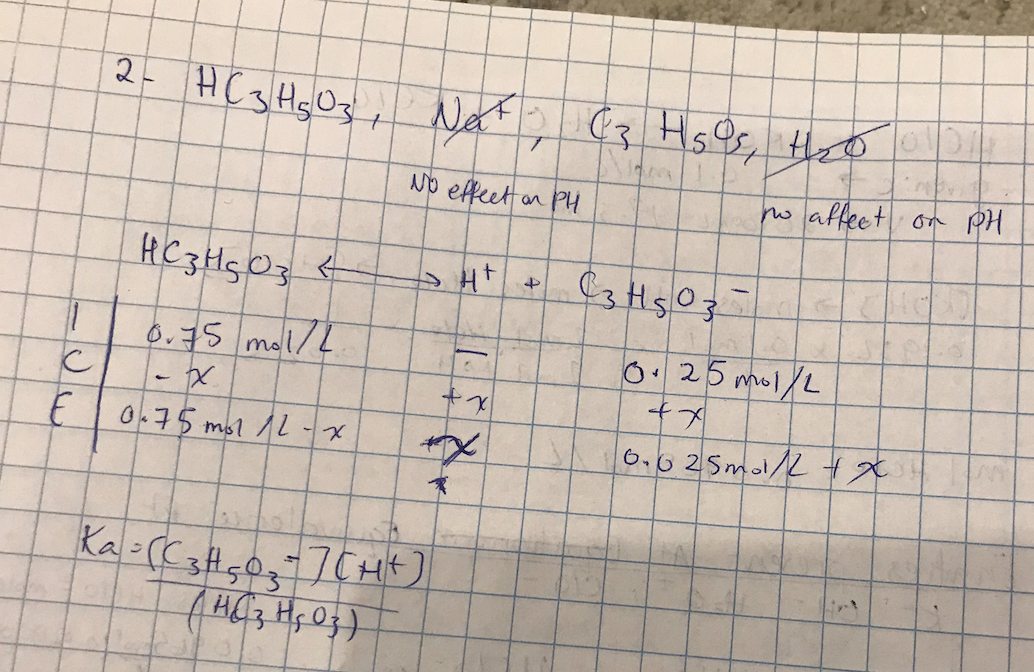 2- HC3H5O3, Na+, C3 H5O5, H2O
No effect on PH
no affect on pH
HC3H5O3 ⟷ H+ + C3H5O3-
I 0.75 mol/L — 0.25 mol/L
C -x +x +x
E 0.75 mol/L -x +x 0.025 mol/L + x
x
Ka = (C3H5O3-](H+)
(HC3H5O3)